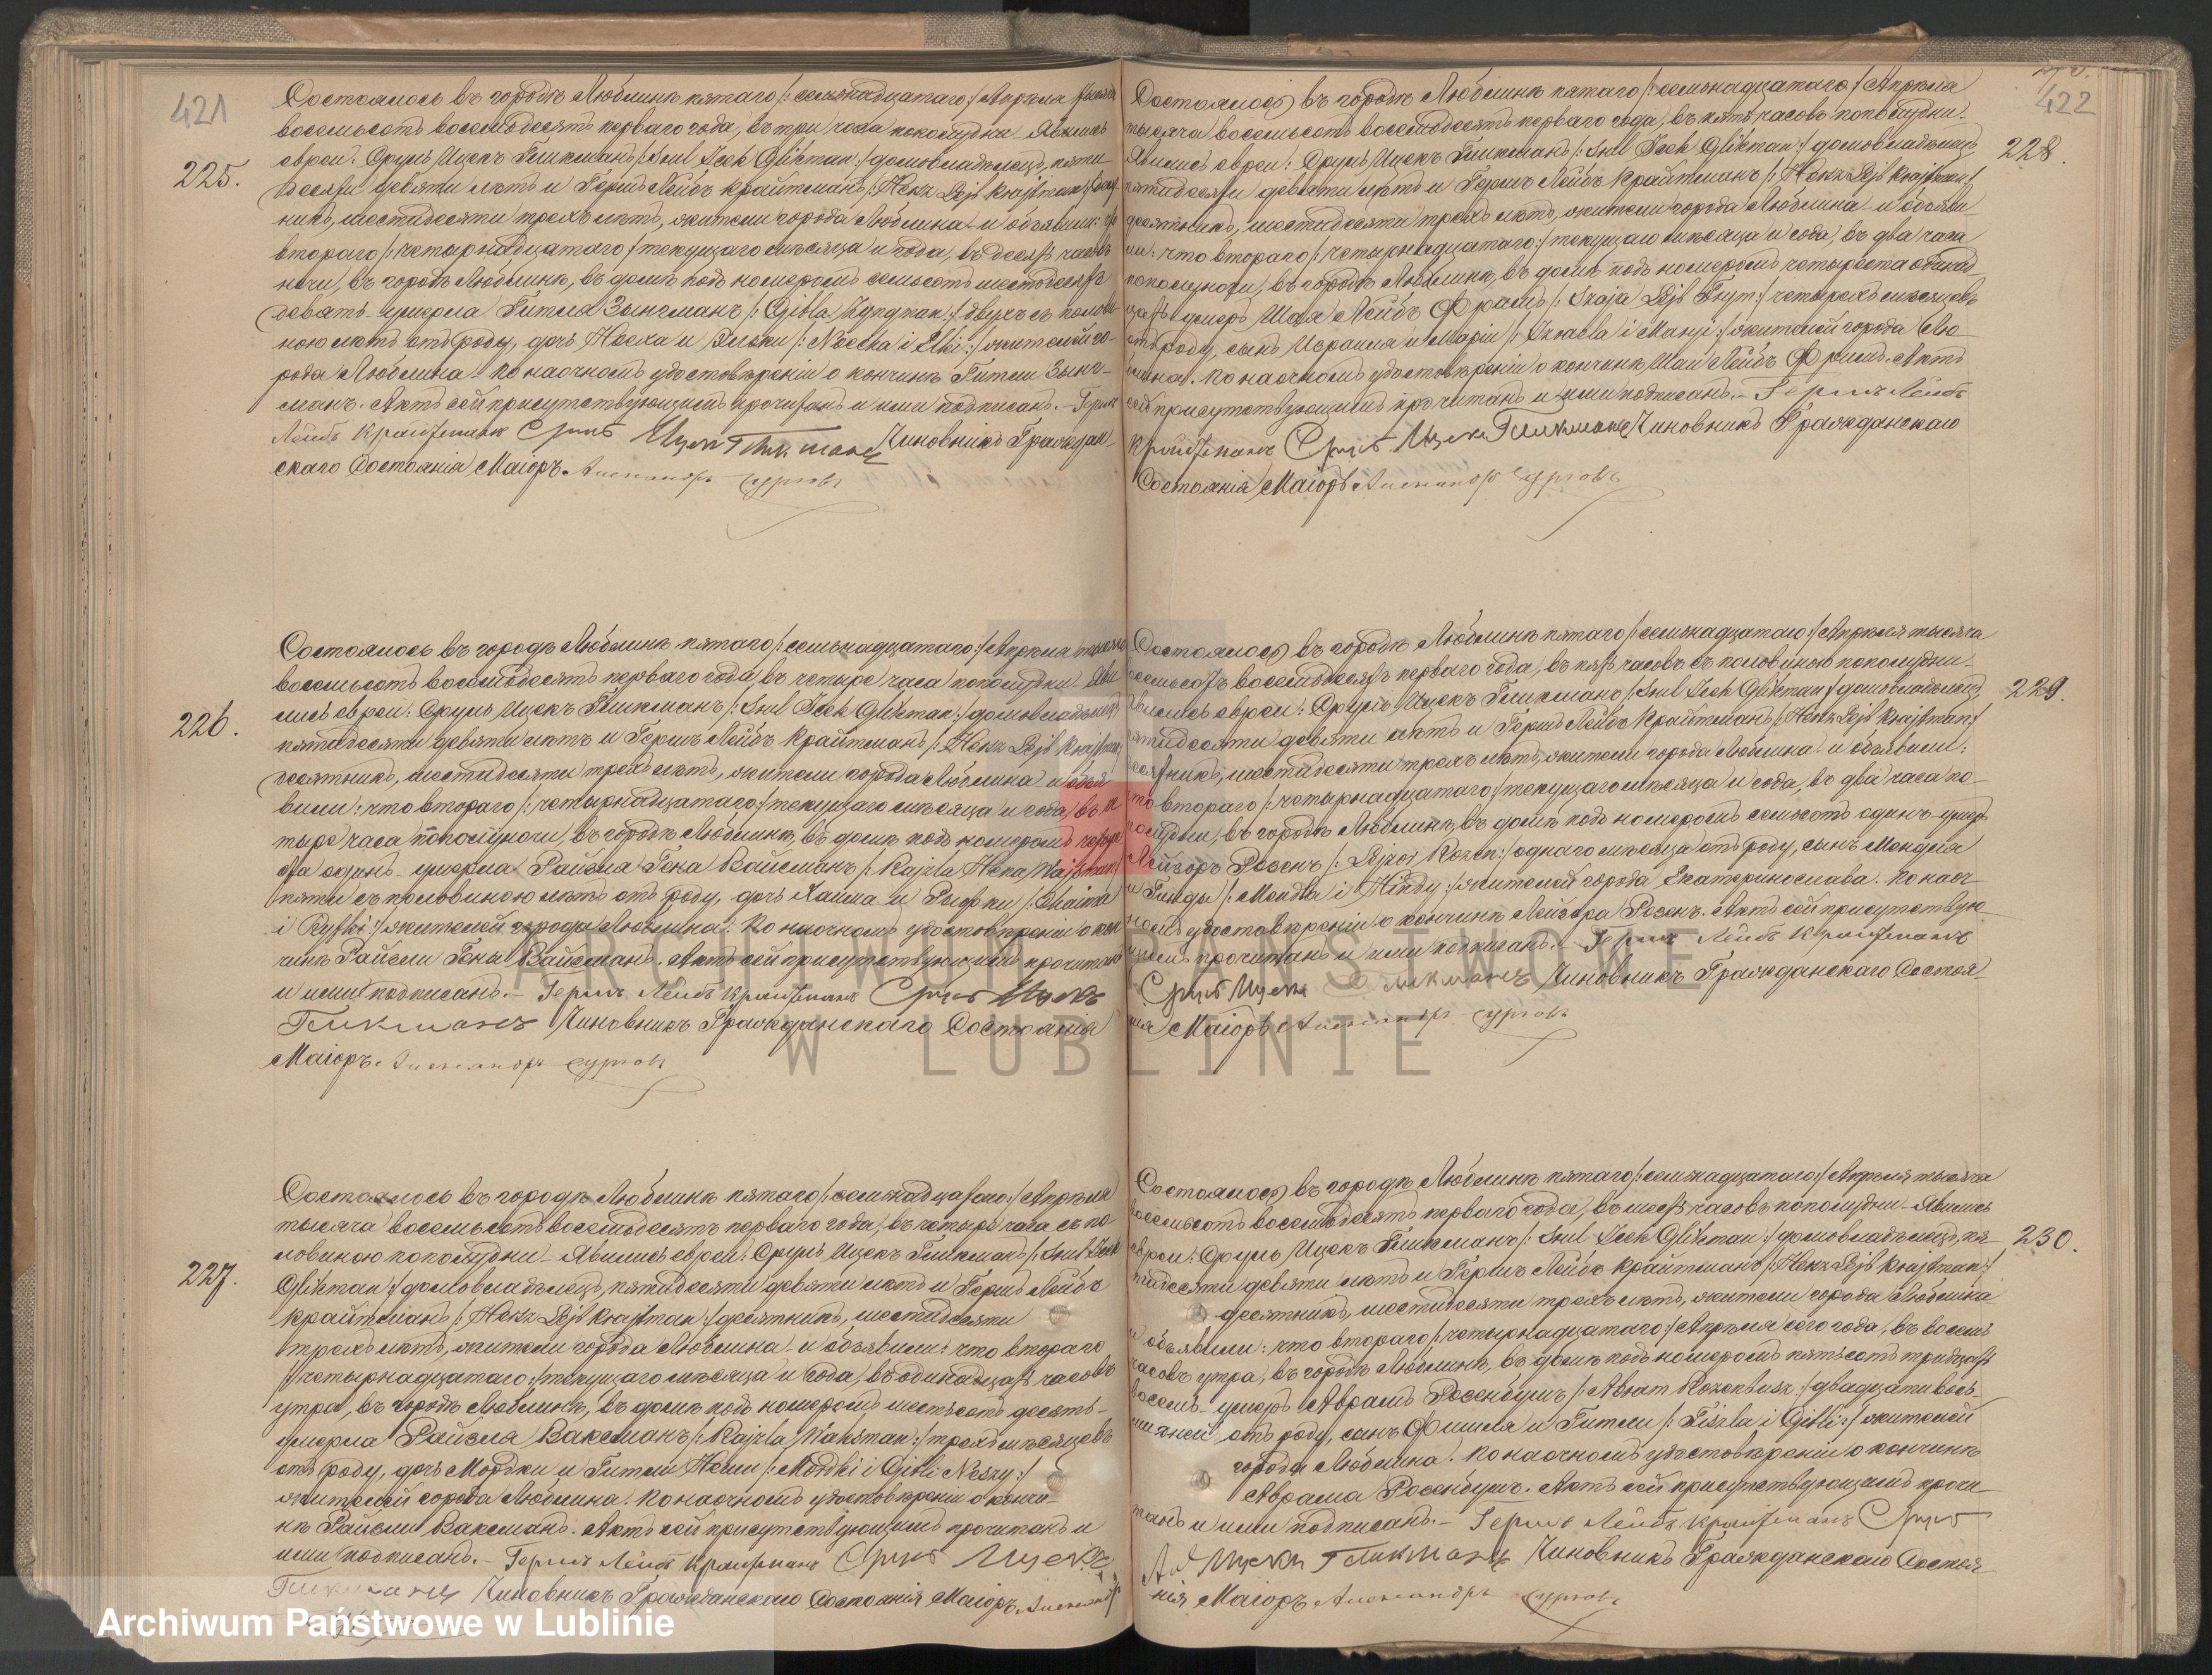 421
225.
Состоялось въ городѣ Люблинѣ пятаго /: семнадцатаго :/ Апрѣля тысяча
восемьсотъ восемьдесятъ перваго года, въ три часа пополудни. Явились
евреи: Сруль Ицекъ Гликманъ /: Srul Icek Glikman :/ домовладѣлецъ, пяти
десяти девяти лѣтъ и Гершъ Лейбъ Крайтманъ /: Herz Lejb Krajtman :/ десят
никъ, шестидесяти трехъ лѣтъ, жители города Люблина и объявили: что
втораго /: четырнадцатаго :/ текущаго мѣсяца и года, въ десять часовъ
ночи, въ городѣ Люблинѣ, въ домѣ подъ номеромъ семьсотъ шестьдесятъ
девять умерла Гитля Зынгманъ /: Gitla :/ двухъ съ полови
ною лѣтъ отъ роду, дочь Носеха и Эльки /: Nosecha i Elki :/ жителей го-
рода Люблина. По наочномъ удостовѣреніи о кончинѣ Гитли Зынг-
манъ. Актъ сей присутствующимъ прочитанъ и ими подписанъ. – Гершъ
Лейбъ Крайтманъ Сруль Ицекъ Гликманъ Чиновникъ Граждан-
скаго Состоянія Маіоръ Александръ
226.
Состоялось въ городѣ Люблинѣ пятаго /: семнадцатаго :/ Апрѣля тысяча
восемьсотъ восемьдесятъ перваго года, въ четыре часа пополудни. Яви
лись евреи: Сруль Ицекъ Гликманъ /: Srul Icek Glikman :/ домовладѣлецъ
пятидесяти девяти лѣтъ и Гершъ Лейбъ Крайтманъ /: Herz Lejb Krajtman :/
десятникъ, шестидесяти трехъ лѣтъ, жители города Люблина и объя
вили: что втораго /: четырнадцатаго :/ текущаго мѣсяца и года, въ че
тыре часа пополуночи, въ городѣ Люблинѣ, въ домѣ подъ номеромъ четыре
ста одинъ умерла Райзля Гена Вайсманъ /: Rajzla Hena Wajsman :/
пяти съ половиною лѣтъ отъ роду, дочь Хаима и Рыфки /: Chaima
i Ryfki :/ жителей города Люблина. По наочномъ удостовѣреніи о кон
чинѣ Райзли Гены Вайсманъ. Актъ сей присутствующимъ прочитанъ
и ими подписанъ. – Гершъ Лейбъ Крайтманъ Сруль Ицекъ
Гликманъ Чиновникъ Гражданскаго Состоянія
Маіоръ Александръ
227.
Состоялось въ городѣ Люблинѣ пятаго /: семнадцатаго :/ Апрѣля
тысяча восемьсотъ восемьдесятъ перваго года, въ четыре часа съ по-
ловиною пополудни. Явились евреи: Сруль Ицекъ Гликманъ /: Srul Icek
Glikman :/ домовладѣлецъ, пятидесяти девяти лѣтъ и Гершъ Лейбъ
Крайтманъ /: Herz Lejb Krajtman :/ десятникъ, шестидесяти
трехъ лѣтъ, жители города Люблина и объявили: что втораго
/: четырнадцатаго :/ текущаго мѣсяца и года, въ одинадцать часовъ
утра, въ городѣ Люблинѣ, въ домѣ подъ номеромъ шестьсотъ десять-
умерла Райзля Ваксманъ /: Rajzla Waksman :/ трехъ мѣсяцевъ
отъ роду, дочь Мордки и Гитли Неши /: Mordki i Gitli Neszy :/
жителей города Люблина. По наочномъ удостовѣреніи о кончи-
нѣ Райзли Ваксманъ. Актъ сей присутствующимъ прочитанъ и
ими подписанъ. – Гершъ Лейбъ Крайтманъ Сруль Ицекъ
Гликманъ Чиновникъ Гражданскаго Состоянія Маіоръ Александръ
422
228.
Состоялось въ городѣ Люблинѣ пятаго /: семнадцатаго :/ Апрѣля
тысяча восемьсотъ восемьдесятъ перваго года, въ пять часовъ пополудни.
Явились евреи: Сруль Ицекъ Гликманъ /: Srul Icek Glikman :/ домовладѣлецъ
пятидесяти девяти лѣтъ и Гершъ Лейбъ Крайтманъ /: Herz Lejb Krajtman :/
десятникъ, шестидесяти трехъ лѣтъ, жители города Люблина и объяви
ли: что втораго /: четырнадцатаго :/ текущаго мѣсяца и года, въ два часа
пополуночи, въ городѣ Люблинѣ, въ домѣ подъ номеромъ четыреста одинад
цать умеръ Шая Лейбъ /: Szaja Lejb :/ четырехъ мѣсяцевъ
отъ роду, сынъ Израиля и Маріи /: Izraela i Maryi :/ жителей города Лю
блина. По наочномъ удостовѣреніи о кончинѣ Шаи Лейбъ Актъ
сей присутствующимъ прочитанъ и ими подписанъ. – Гершъ Лейбъ
Крайтманъ Сруль Ицекъ Гликманъ Чиновникъ Гражданскаго
Состоянія Маіоръ Александръ
229.
Состоялось въ городѣ Люблинѣ пятаго /: семнадцатаго :/ Апрѣля тысяча
восемьсотъ восемьдесятъ перваго года, въ пять часовъ съ половиною пополудни.
Явились евреи: Сруль Ицекъ Гликманъ /: Srul Icek Glikman :/ домовладѣлецъ,
пятидесяти девяти лѣтъ и Гершъ Лейбъ Крайтманъ /: Herz Lejb Krajtman :/
десятникъ, шестидесяти трехъ лѣтъ, жители города Люблина и объявили:
что втораго /: четырнадцатаго :/ текущаго мѣсяца и года, въ два часа по-
полудни, въ городѣ Люблинѣ, въ домѣ подъ номеромъ семьсотъ одинъ умеръ
Лейзоръ Розенъ /: Lejzor Rozen :/ одного мѣсяца отъ роду, сынъ Мендля
и Гинды /: Mendla i Hindy :/ жителей города Екатеринослава. По наоч-
номъ удостовѣреніи о кончинѣ Лейзора Розенъ. Актъ сей присутствую-
щимъ прочитанъ и ими подписанъ. – Гершъ Лейбъ Крайтманъ
Сруль Ицекъ Гликманъ Чиновникъ Гражданскаго Состоя
нія Маіоръ Александръ
230.
Состоялось въ городѣ Люблинѣ пятаго /: семнадцатаго :/ Апрѣля тысяча
восемьсотъ восемьдесятъ перваго года, въ шесть часовъ пополудни. Явились
евреи: Сруль Ицекъ Гликманъ /: Srul Icek Glikman :/ домовладѣлецъ, пя-
тидесяти девяти лѣтъ и Гершъ Лейбъ Крайтманъ /: Herz Lejb Krajtman :/
десятникъ, шестидесяти трехъ лѣтъ, жители города Люблина
и объявили: что втораго /: четырнадцатаго :/ Апрѣля сего года, въ восемь
часовъ утра, въ городѣ Люблинѣ, въ домѣ подъ номеромъ пятьсотъ тридцать
восемь умеръ Аврамъ Розенбушъ /: Abram Rozenbusz :/ двадцати вось-
ми дней отъ роду, сынъ Фишля и Гитли /: Fiszla i Gitli :/ жителей
города Люблина. По наочномъ удостовѣреніи о кончинѣ
Аврама Розенбушъ. Актъ сей присутствующимъ прочи-
танъ и ими подписанъ. – Гершъ Лейбъ Крайтманъ Сруль
Ицекъ Гликманъ Чиновникъ Гражданскаго Состоя-
нія Маіоръ Александръ
ARCHIWUM PAŃSTWOWE
W LUBLINIE
Archiwum Państwowe w Lublinie